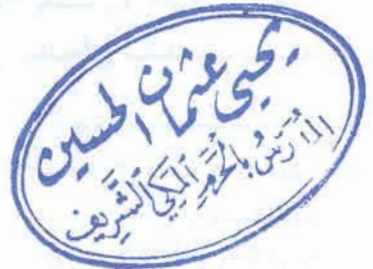 يحيى عثمان الحسين
المُدَرِّسُ بِالْحَرَمِ المَكِّي الشَّرِيف